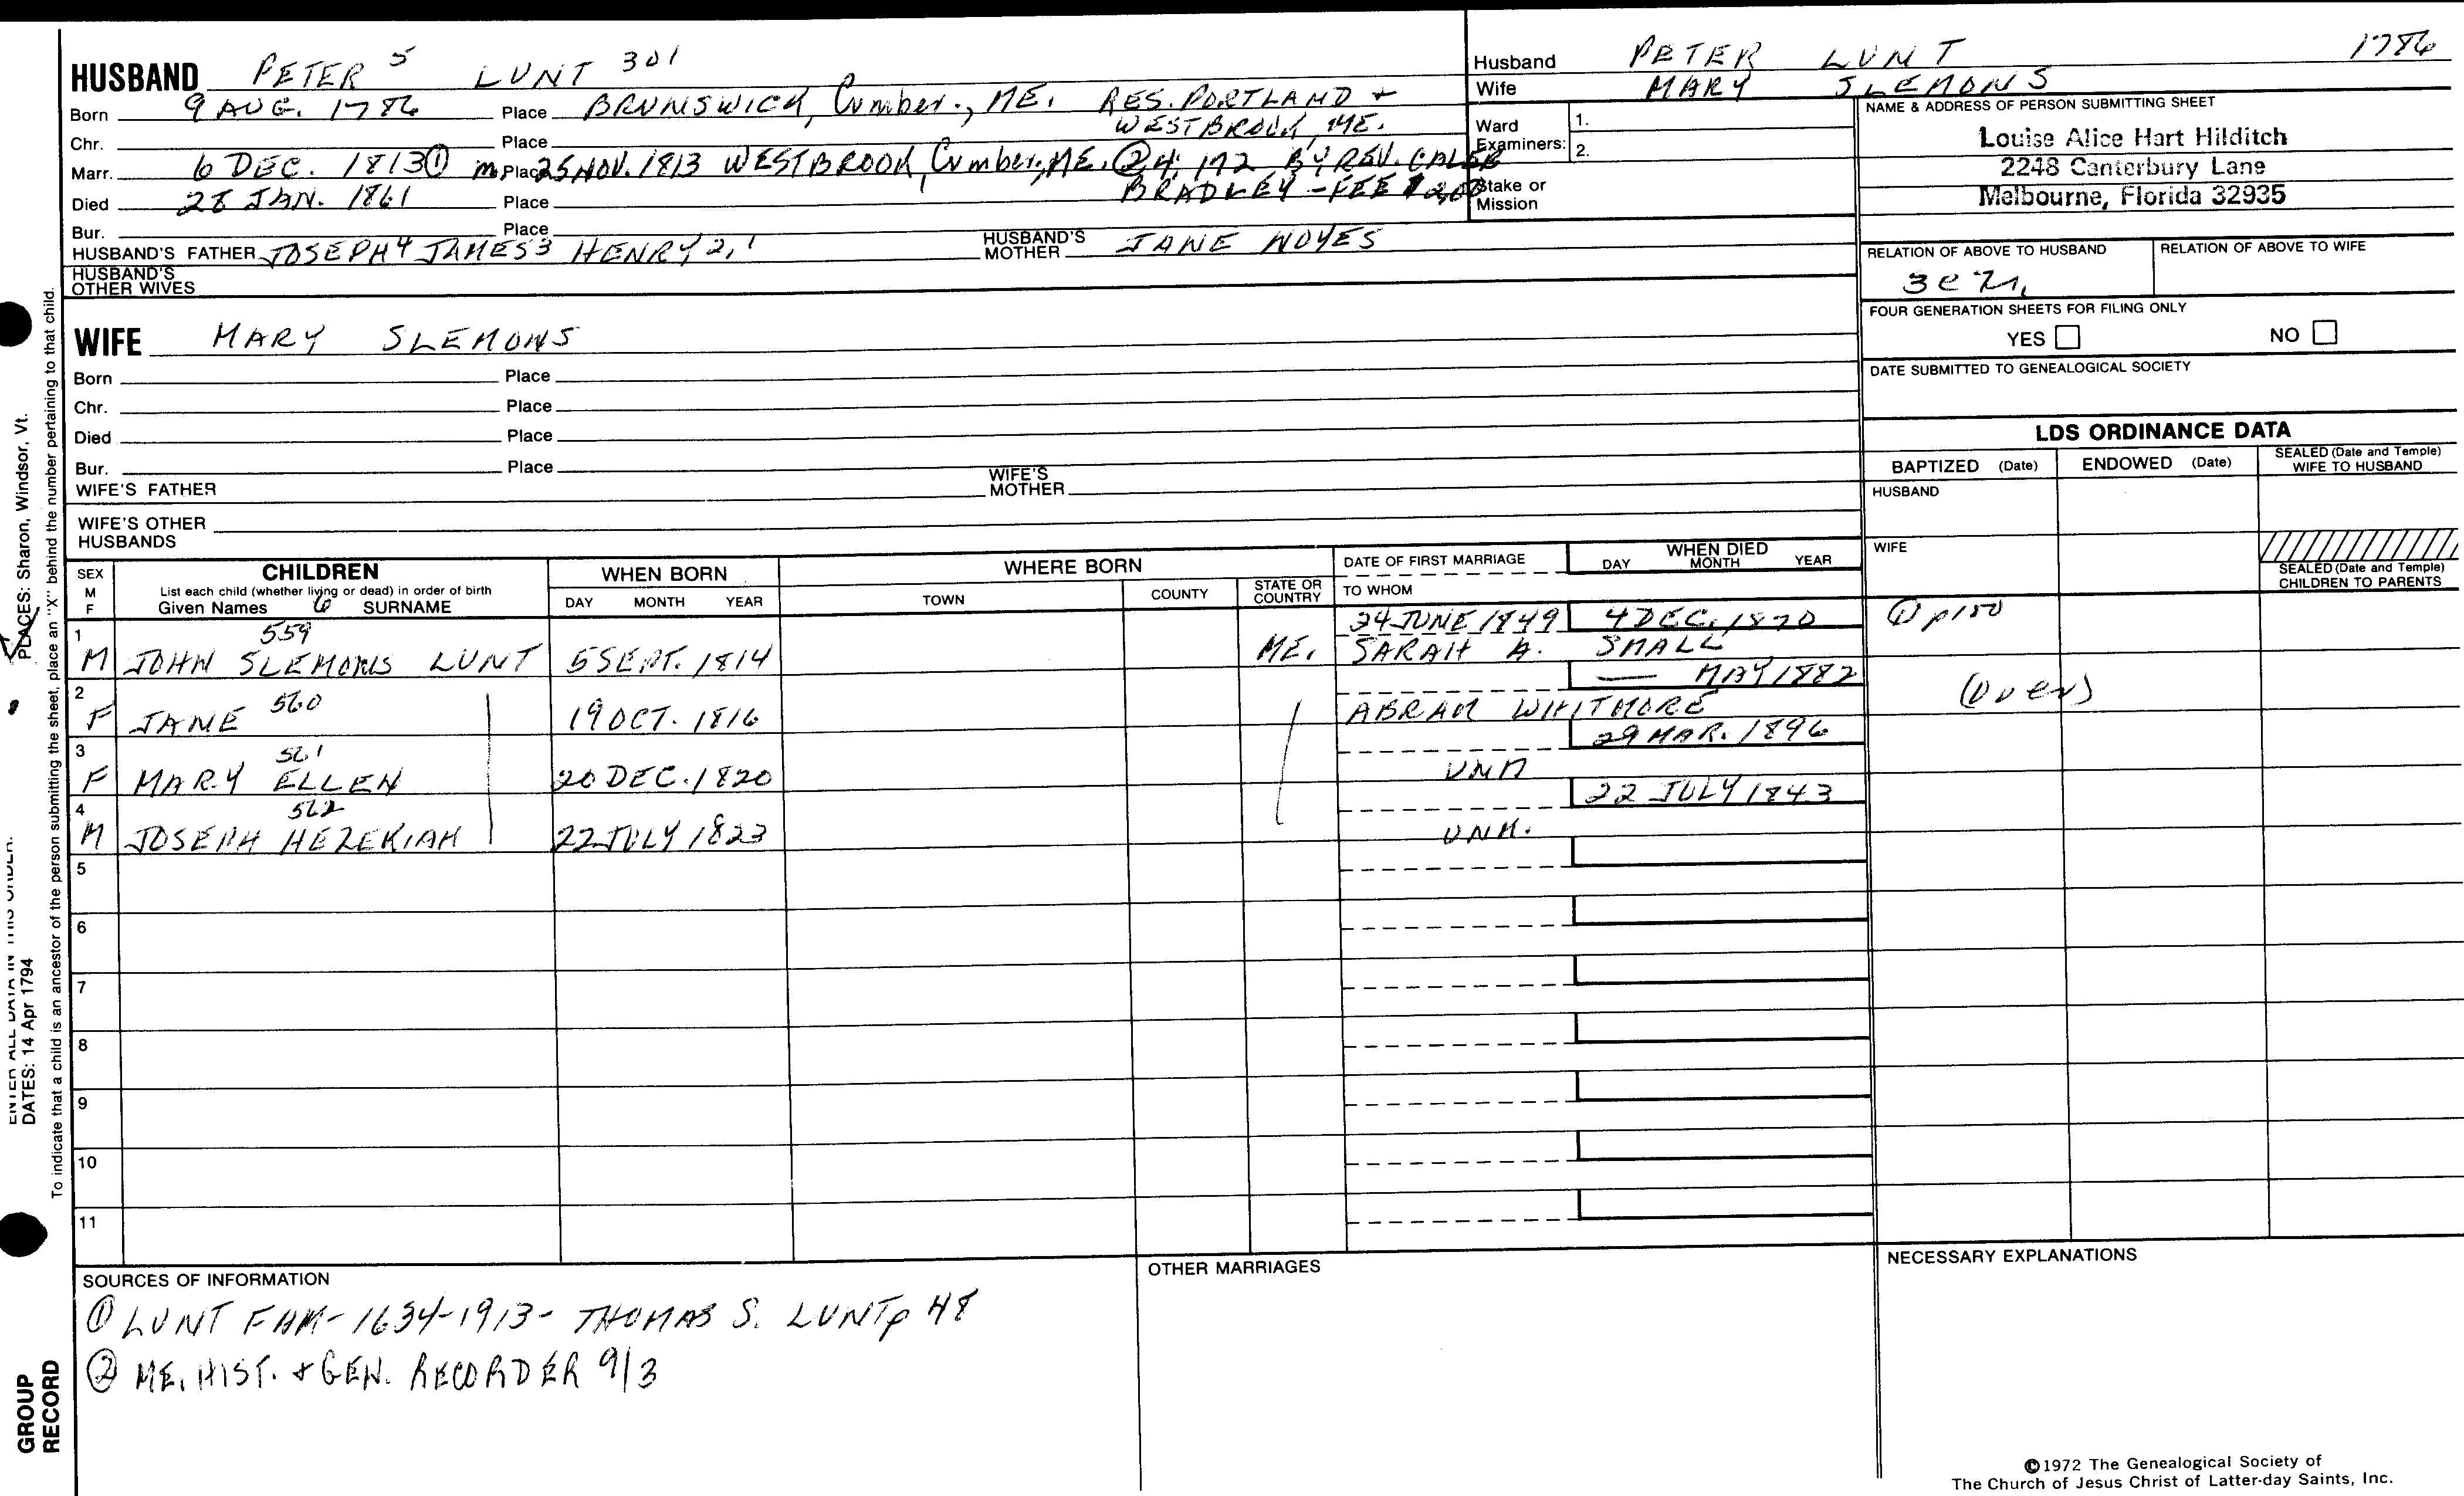 HUSBAND PETER 5 LUNT 301
Born 9 AUG. 1786 Place BRUNSWICK, Cumber., ME. RES. PORTLAND +
WESTBROOK, ME.
Chr. Place
Marr. 6 DEC. 1813 ① m. Place 25 NOV. 1813 WESTBROOK, Cumber., ME. ② 4: 172 BY REV. CALEB
BRADLEY - FEE $2.00
Died 28 JAN. 1861 Place
Bur. Place
HUSBAND'S FATHER JOSEPH 4 JAMES 3 HENRY 2, 1 HUSBAND'S MOTHER JANE NOYES
HUSBAND'S OTHER WIVES
Husband PETER LUNT 1786
Wife MARY SLEMONS
Ward Examiners: 1.
2.
Stake or Mission
NAME & ADDRESS OF PERSON SUBMITTING SHEET
Louise Alice Hart Hilditch
2248 Canterbury Lane
Melbourne, Florida 32935
RELATION OF ABOVE TO HUSBAND RELATION OF ABOVE TO WIFE
FOUR GENERATION SHEETS FOR FILING ONLY
YES NO
DATE SUBMITTED TO GENEALOGICAL SOCIETY
WIFE MARY SLEMONS
Born Place
Chr. Place
Died Place
Bur. Place
WIFE'S FATHER WIFE'S MOTHER
WIFE'S OTHER HUSBANDS
LDS ORDINANCE DATA
BAPTIZED (Date) ENDOWED (Date) SEALED (Date and Temple) WIFE TO HUSBAND
HUSBAND
WIFE
SEALED (Date and Temple) CHILDREN TO PARENTS
SEX M F
CHILDREN
List each child (whether living or dead) in order of birth
Given Names 6 SURNAME
WHEN BORN
DAY MONTH YEAR
WHERE BORN
TOWN COUNTY STATE OR COUNTRY
DATE OF FIRST MARRIAGE
TO WHOM
WHEN DIED
DAY MONTH YEAR
1 559 24 JUNE 1849 4 DEC. 1870 ① p150
M JOHN SLEMONS LUNT 5 SEPT. 1814 ME. SARAH A. SMALL
2 560 — MAY 1882 (over)
F JANE 19 OCT. 1816 ABRAM WHITMORE
3 561 29 MAR. 1896
F MARY ELLEN 20 DEC. 1820 UNM
4 562 22 JULY 1843
M JOSEPH HEZEKIAH 22 JULY 1823 UNM.
5
6
7
8
9
10
11
SOURCES OF INFORMATION
① LUNT FAM - 1634-1913 - THOMAS S. LUNT p 48
② ME. HIST. + GEN. RECORDER 9/3
OTHER MARRIAGES
NECESSARY EXPLANATIONS
©1972 The Genealogical Society of
The Church of Jesus Christ of Latter-day Saints, Inc.
PLACES: Sharon, Windsor, Vt.
ENTER ALL DATA IN THIS ORDER:
DATES: 14 Apr 1794
To indicate that a child is an ancestor of the person submitting the sheet, place an "X" behind the number pertaining to that child.
GROUP
RECORD